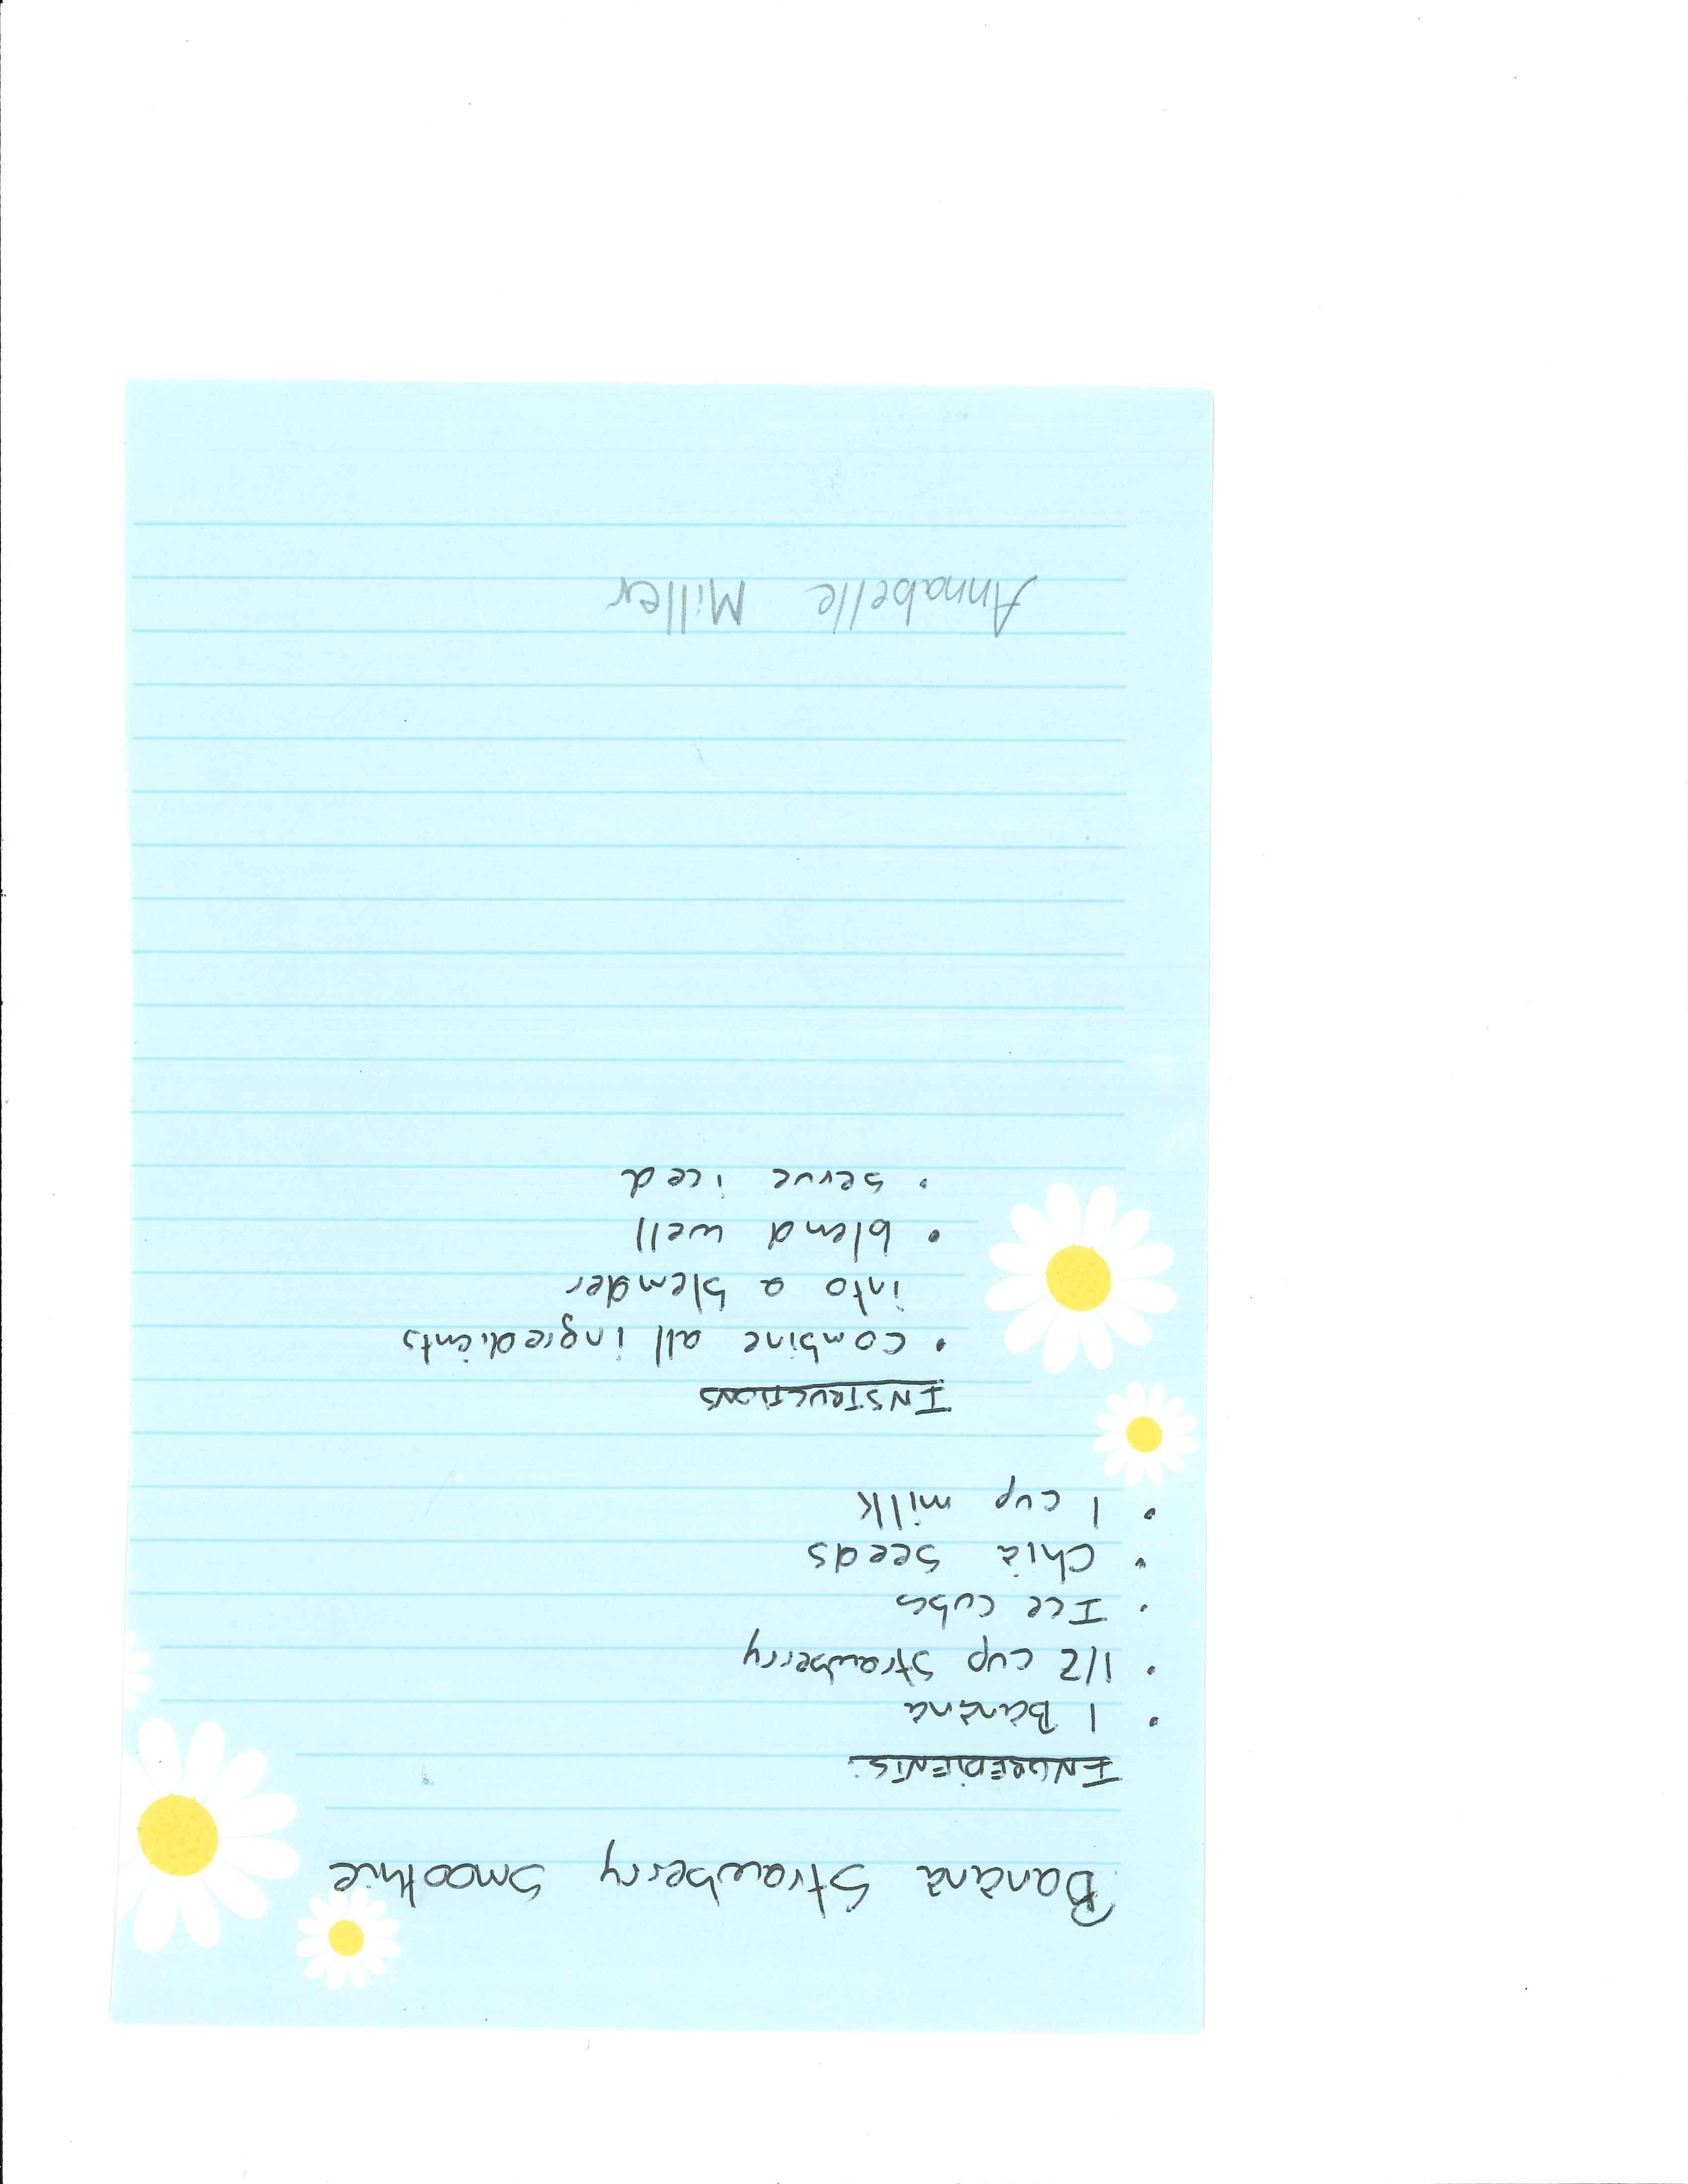 Banana Strawberry Smoothie
INGREDIENTS:
• 1 Banana
• 1/2 cup strawberry
• Ice cubes
• Chia seeds
• 1 cup milk
INSTRUCTIONS
• combine all ingredients
into a blender
• blend well
• serve iced
Annabelle Miller